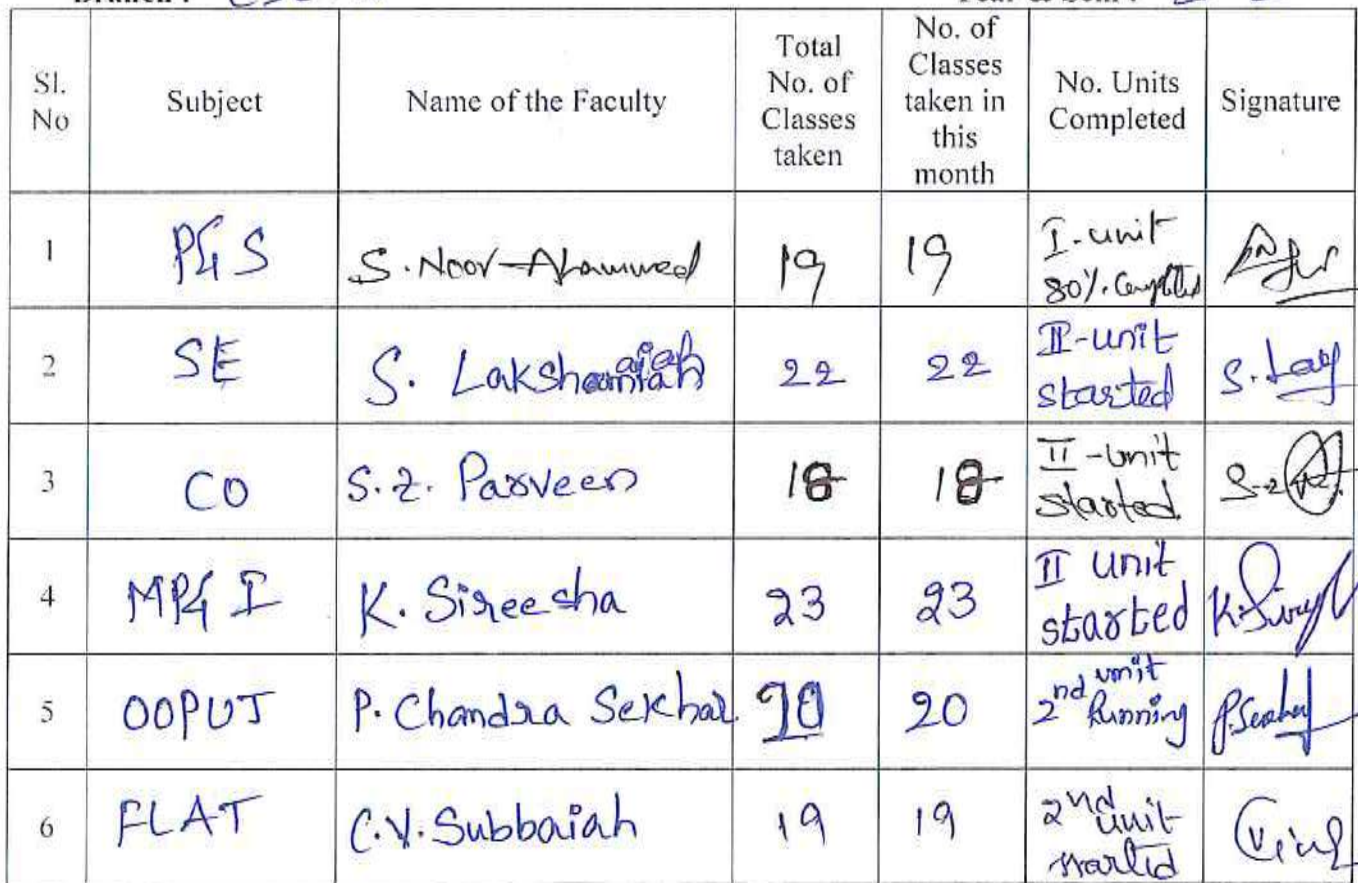 Sl. No | Subject | Name of the Faculty | Total No. of Classes taken | No. of Classes taken in this month | No. Units Completed | Signature
1 | P&S | S. Noor-Ahammed | 19 | 19 | I-unit 80%. Completed
2 | SE | S. Lakshmaiah | 22 | 22 | II-unit started | S. Lay
3 | CO | S.Z. Parveen | 18 | 18 | II-unit started
4 | MP& I | K. Sireesha | 23 | 23 | II unit started
5 | OOPUJ | P. Chandra Sekhar | 20 | 20 | 2nd unit Running
6 | FLAT | C.V. Subbaiah | 19 | 19 | 2nd unit started